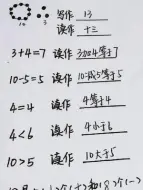 写作 13
10 3 读作 十三
3+4=7 读作 3加4等于7
10-5=5 读作 10减5等于5
4=4 读作 4等于4
4<6 读作 4小于6
10>5 读作 10大于5